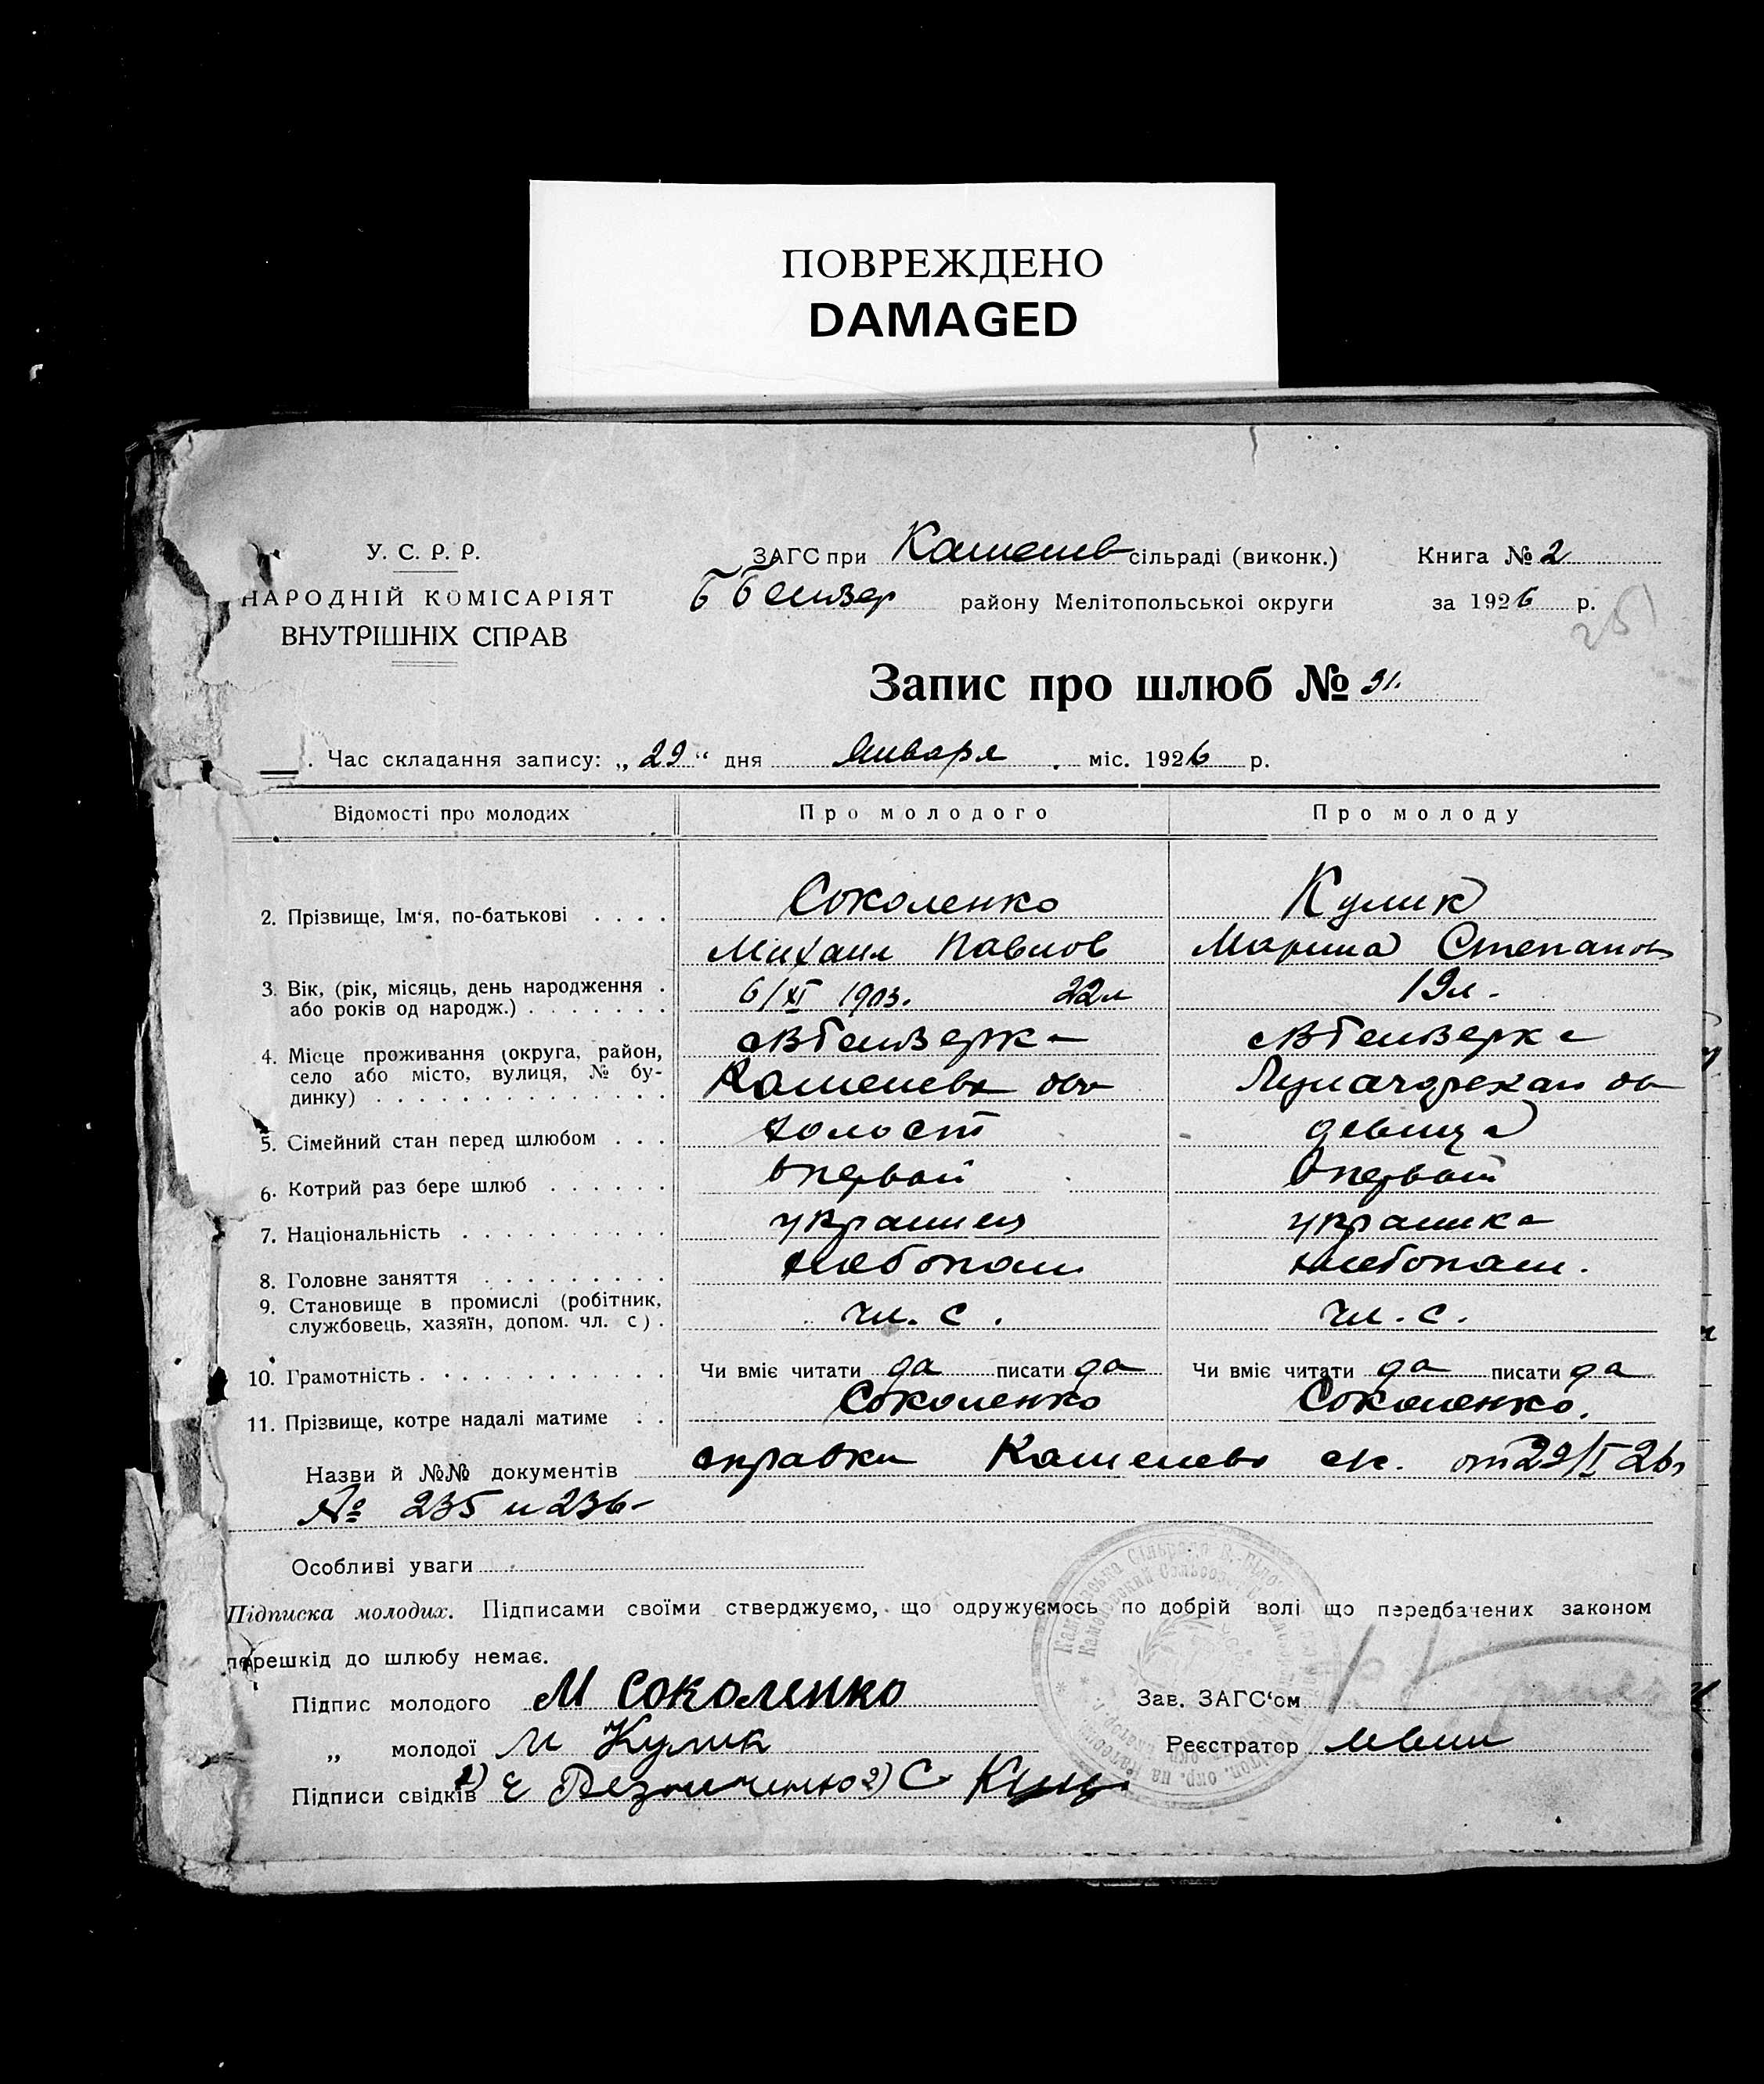 ПОВРЕЖДЕНО
DAMAGED
У. С. Р. Р.
НАРОДНІЙ КОМІСАРІЯТ
ВНУТРІШНІХ СПРАВ
ЗАГС при Каменев сільраді (виконк.)
Книга № 2
району Мелітопольської округи
за 1926 р.
Запис про шлюб № 31.
Час складання запису: „29“ дня Января міс. 1926 р.
Відомості про молодих
Про молодого
Про молоду
2. Прізвище, Ім‘я, по-батькові . . . .
Соколенко
Кулик
Михаил Павлов
Марина Степанов
3. Вік, (рік, місяць, день народження .
або років од народж.) . . . . . . .
6/XI 1903. 22л
19л.
4. Місце проживання (округа, район,
село або місто, вулиця, № бу-
динку) . . . . . . . . . . . . . .
5. Сімейний стан перед шлюбом . . .
холост
девица
6. Котрий раз бере шлюб . . . . . .
впервой
впервой
7. Національність . . . . . . . . . .
украинец
украинка
8. Головне заняття . . . . . . . . .
хлебопаш
хлебопаш.
9. Становище в промислі (робітник,
службовець, хазяїн, допом. чл. с) .
чл. с.
чл. с.
10. Грамотність . . . . . . . . . . . .
Чи вміє читати да писати да
Чи вміє читати да писати да
11. Прізвище, котре надалі матиме . .
Соколенко
Соколенко.
Назви й №№ документів справки Каменев от 29/I 26
№ 235 и 236
Особливі уваги
Підписка молодих. Підписами своїми стверджуємо, що одружуємось по добрій волі що передбачених законом
перешкід до шлюбу немає.
Підпис молодого М Соколенко
Зав. ЗАГС‘ом
„ молодої М Кулик
Реєстратор
Підписи свідків 1) 2) С